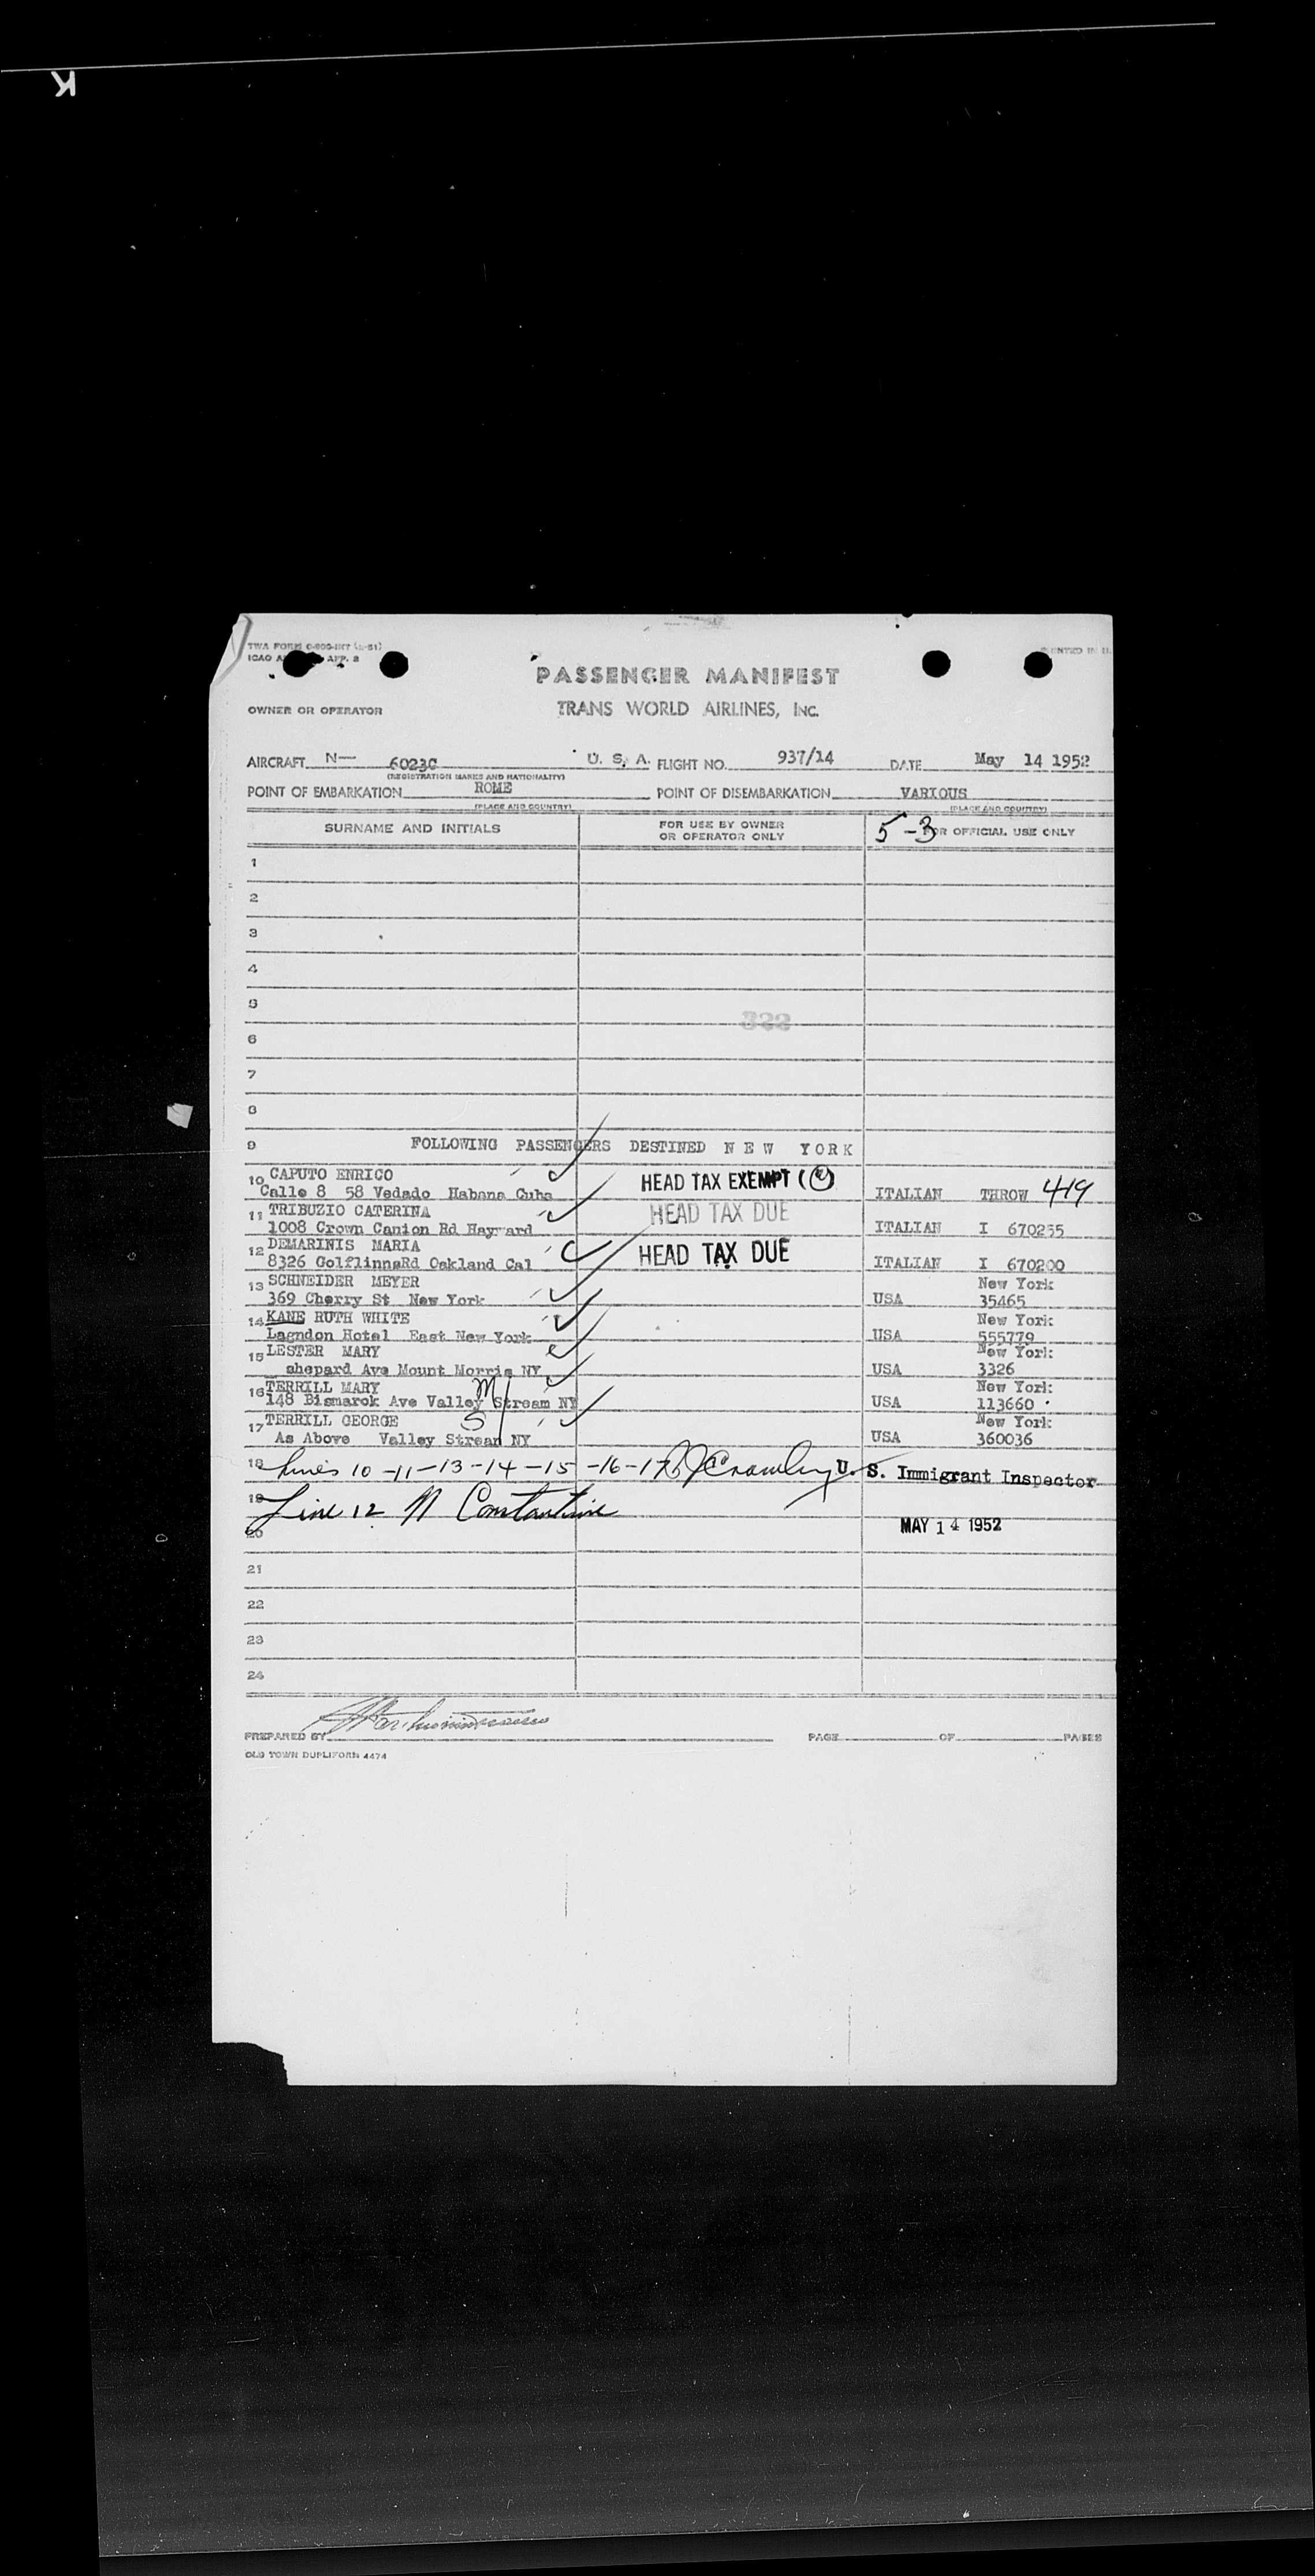 K
TWA FORM
ICAO
PRINTED IN U.
PASSENGER MANIFEST
OWNER OR OPERATOR
TRANS WORLD AIRLINES, INC.
AIRCRAFT N— 6023C U. S. A. FLIGHT NO. 937/14 DATE May 14 1952
(REGISTRATION MARKS AND NATIONALITY)
POINT OF EMBARKATION ROME POINT OF DISEMBARKATION VARIOUS
(PLACE AND COUNTRY) (PLACE AND COUNTRY)
SURNAME AND INITIALS FOR USE BY OWNER OR OPERATOR ONLY 5-3 FOR OFFICIAL USE ONLY
1
2
3
4
5
322
6
7
8
9 FOLLOWING PASSENGERS DESTINED N E W YORK
10 CAPUTO ENRICO HEAD TAX EXEMPT
Calle 8 58 Vedado Habana Cuba ITALIAN THROW 419
11 TRIBUZIO CATERINA HEAD TAX DUE
1008 Crown Canion Rd Hayward ITALIAN I 670235
12 DEMARINIS MARIA HEAD TAX DUE
8326 GolflinnsRd Oakland Cal ITALIAN I 670200
13 SCHNEIDER MEYER New York
369 Cherry St New York USA 35465
14 KANE RUTH WHITE New York
Lagndon Hotel East New York USA 555779
15 LESTER MARY New York
shepard Ave Mount Morris NY USA 3326
16 TERRILL MARY M New York
148 Bismarok Ave Valley Stream NY USA 113660
17 TERRILL GEORGE S New York
As Above Valley Strean NY USA 360036
18 Lines 10-11-13-14-15-16-17 Crowley U. S. Immigrant Inspector
19 Line 12 N Constantine
20 MAY 14 1952
21
22
23
24
PREPARED BY PAGE OF PAGES
OLD TOWN DUPLIFORM 4474